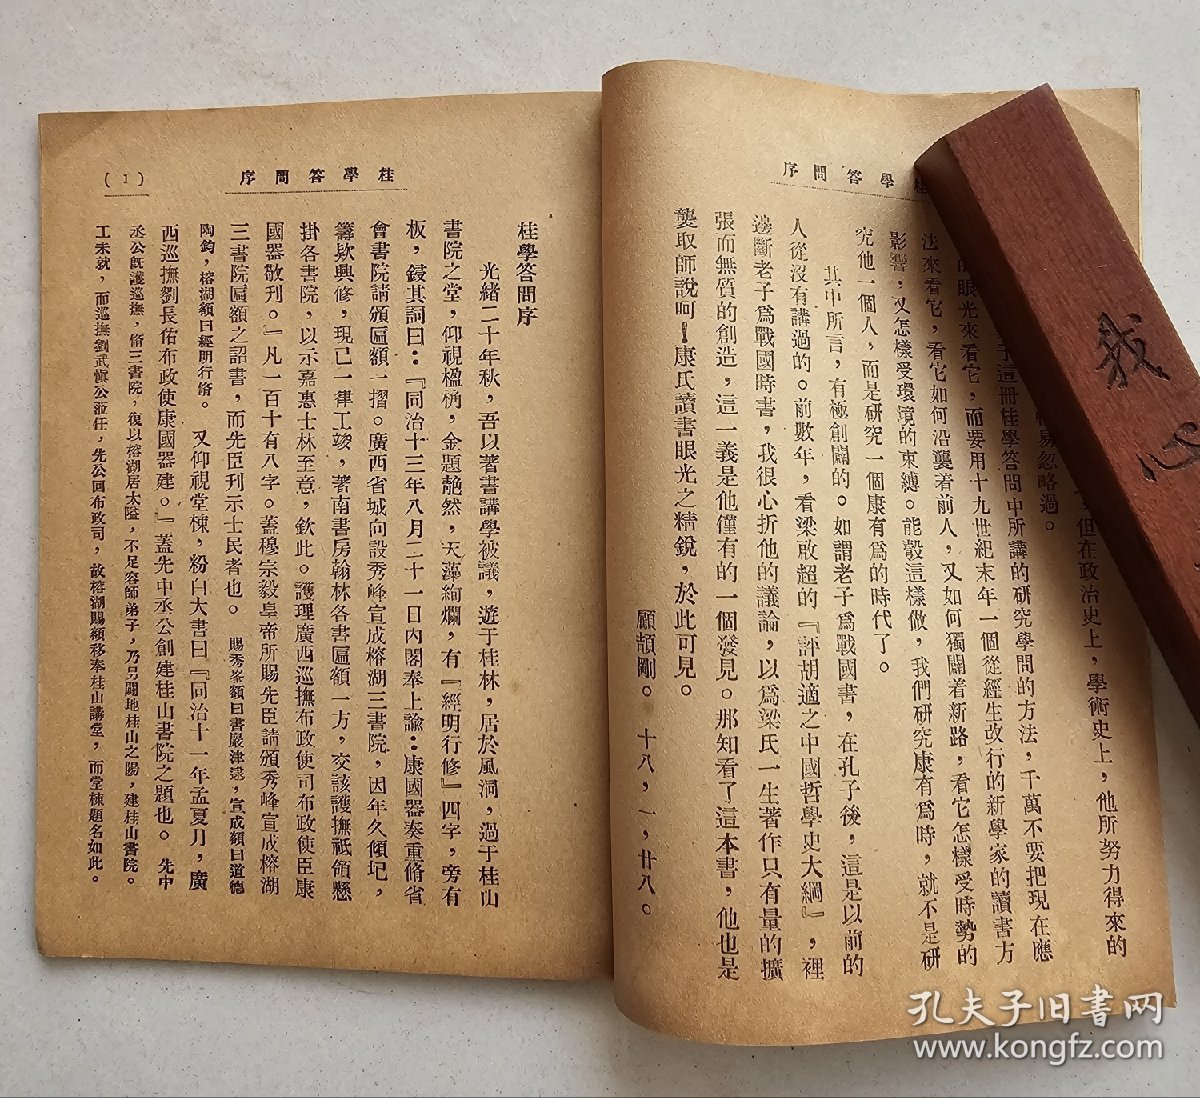 桂學答問序
但在政治史上，學術史上，他所努力得來的
易忽略過。
這冊桂學答問中所講的研究學問的方法，千萬不要把現在應
的眼光來看它，而要用十九世紀末年一個從經生改行的新學家的讀書方
法來看它，看它如何沿襲着前人，又如何獨闢着新路，看它怎樣受時勢的
影響，又怎樣受環境的束縛。能彀這樣做，我們研究康有爲時，就不是研
究他一個人，而是研究一個康有爲的時代了。
其中所言，有極創闢的。如謂老子爲戰國書，在孔子後，這是以前的
人從沒有講過的。前數年，看梁啟超的『評胡適之中國哲學史大綱』，裡
邊斷老子爲戰國時書，我很心折他的議論，以爲梁氏一生著作只有量的擴
張而無質的創造，這一義是他僅有的一個發見。那知看了這本書，他也是
襲取師說呵！康氏讀書眼光之精銳，於此可見。
顧頡剛。十八，一，廿八。
桂學答問序
(1)
桂學答問序
光緒二十年秋，吾以著書講學被議，遊于桂林，居於風洞，過于桂山
書院之堂，仰視楹桷，金題艴然，天藻絢爛，有『經明行修』四字，旁有
板，鋟其詞曰：『同治十三年八月二十一日內閣奉上諭：康國器奏重脩省
會書院請頒匾額一摺。廣西省城向設秀峰宣成榕湖三書院，因年久傾圮，
籌欵興修，現已一律工竣，著南書房翰林各書匾額一方，交該護撫祗領懸
掛各書院，以示嘉惠士林至意，欽此。護理廣西巡撫布政使司布政使臣康
國器敬刊。』凡一百十有八字。蓋穆宗毅皇帝所賜先臣請頒秀峰宣成榕湖
三書院匾額之詔書，而先臣刊示士民者也。賜秀峯額曰書巖津逮，宣成額曰道德
陶鈞，榕湖額曰經明行脩。又仰視堂棟，粉白大書曰『同治十一年孟夏月，廣
西巡撫劉長佑布政使康國器建。』蓋先中丞公創建桂山書院之題也。先中
丞公旣護巡撫，脩三書院，復以榕湖居太隘，不足容師弟子，乃另闢地桂山之陽，建桂山書院。
工未就，而巡撫劉武愼公涖任，先公囘布政司，故榕湖賜額移奉桂山講堂，而堂棟題名如此。
我
心
孔夫子旧书网
www.kongfz.com